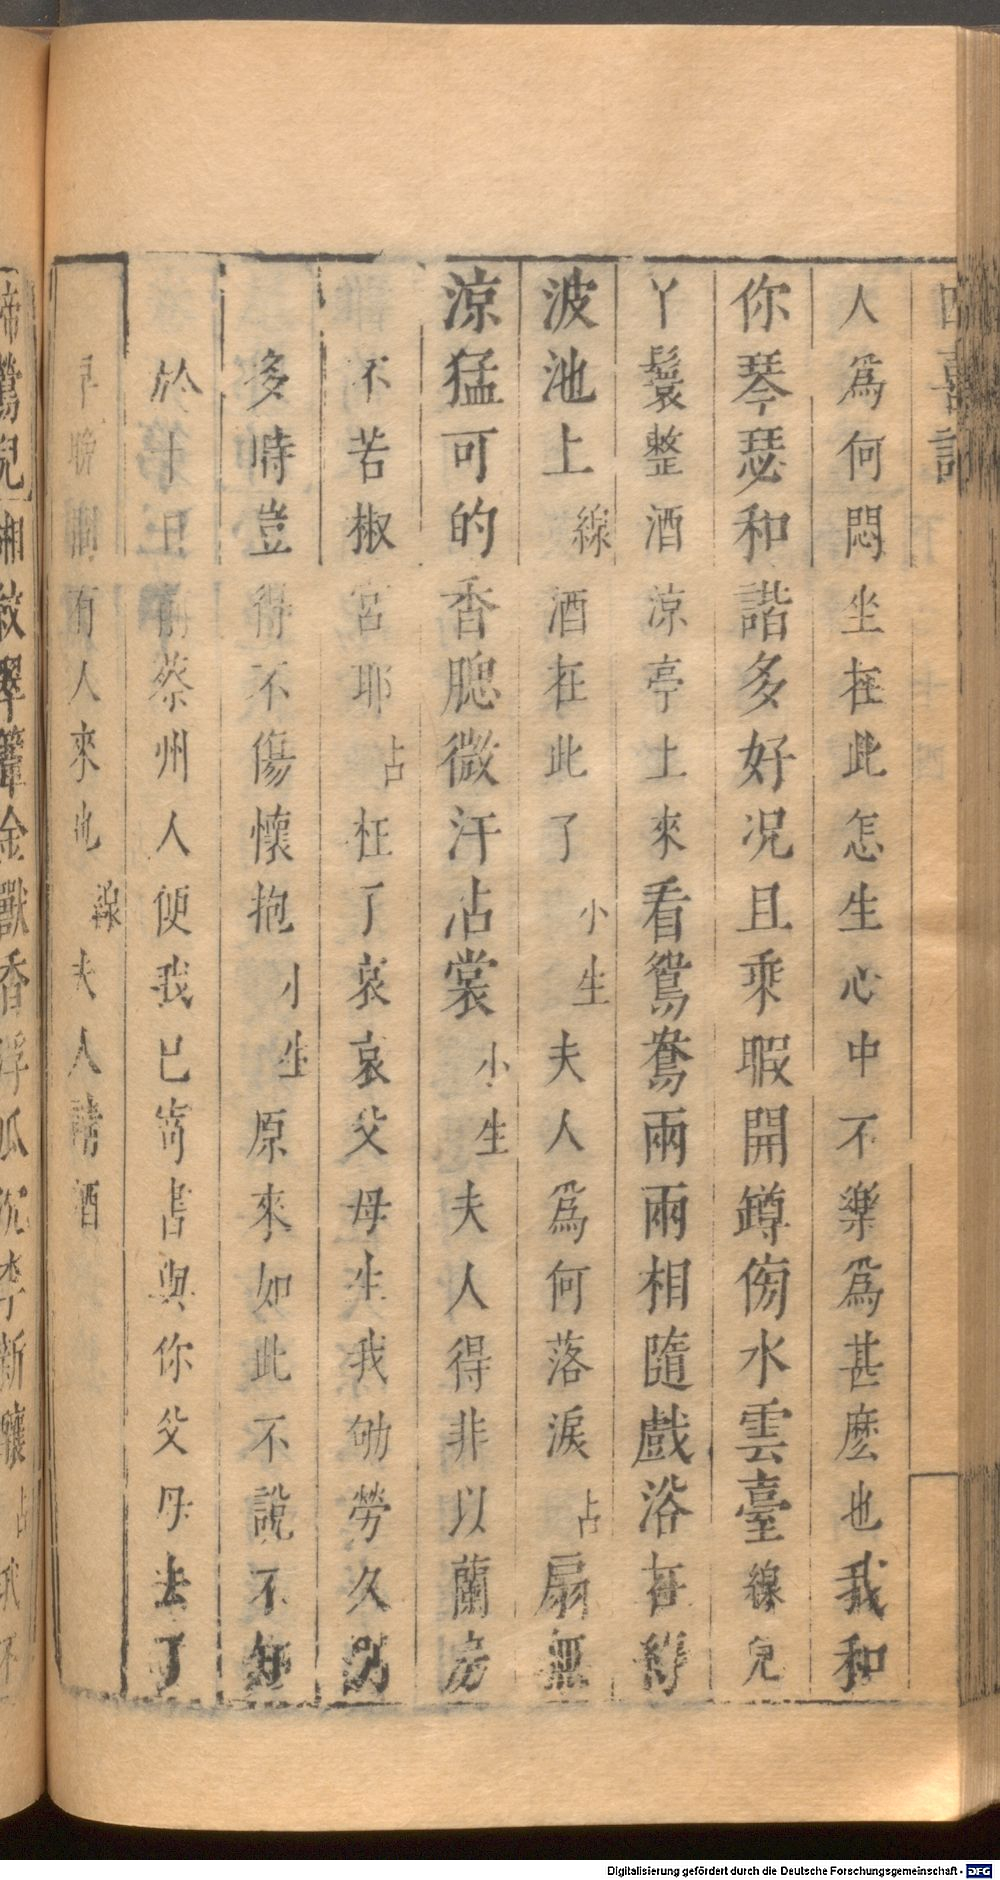 四喜記
人爲何悶坐在此怎生心中不樂爲甚麽也我和
你琴瑟和諧多好况且乘暇開罇傍水雲臺線兒
丫鬟整酒涼亭上來看鴛鴦兩兩相隨戲浴在綠
波池上線酒在此了小生夫人爲何落淚占扇無
涼猛可的香腮微汗沾裳小生夫人得非以蘭房
不若椒宮耶占枉了哀哀父母生我劬勞久別
多時豈得不傷懷抱小生原來如此不說不知
於十日前蔡州人便我已寄書與你父母去了
早晚則有人來也線夫人請酒
啼鶯兒湘紋翠簟金獸香浮瓜沉李新釀占我不
Digitalisierung gefördert durch die Deutsche Forschungsgemeinschaft - DFG